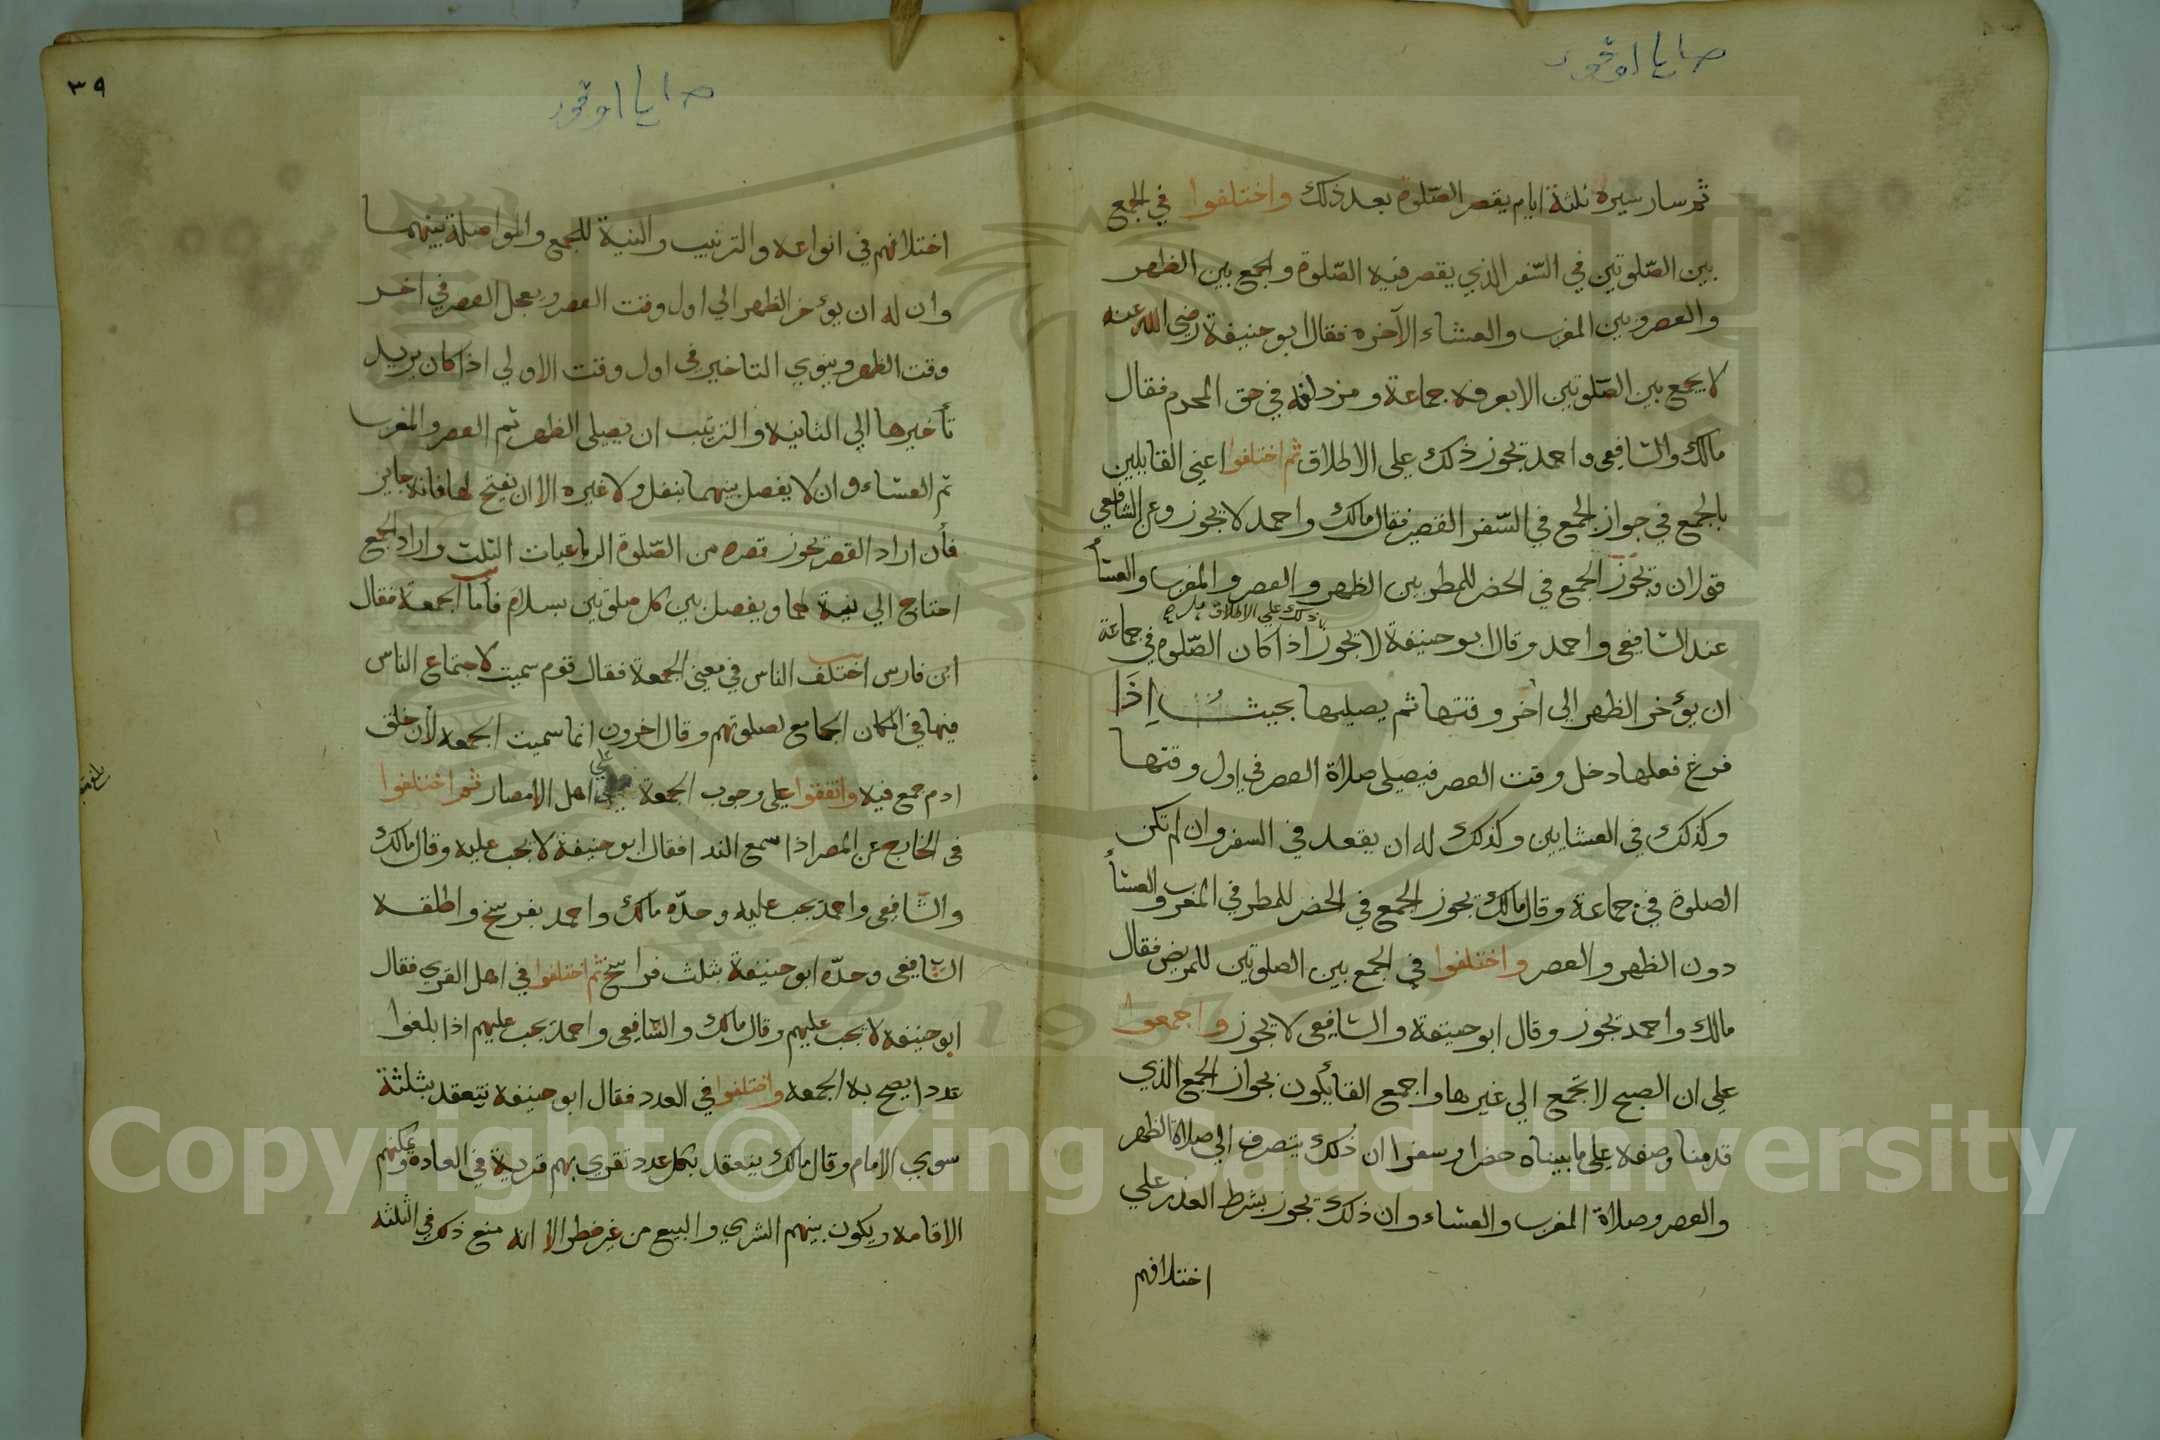 ثم سار سيره ثلثة ايام يقصر الصّلوة بعد ذلك واختلفوا في الجمع
بين الصّلوتين في السّفر الذي يقصر فيه الصّلوة والجمع بين الظهر
والعصر وبين المغرب والعشاء الآخره فقال ابو حنيفة رضي الله عنه
لا يجمع بين الصّلوتين الا بعرفه جماعة ومزدلفه في حق المحرم فقال
مالك والشافعى واحمد يجوز ذلك على الاطلاق ثم اختلفوا اعني القايلين
بالجمع في جواز الجمع في السّفر القصير فقال مالك واحمد لا يجوز وعن الشافعي
قولان ويجوز الجمع في الحضر للمطر بين الظهر والعصر والمغرب والعشأ
ذلك على الاطلاق
عند الشافعى واحمد وقال ابو حنيفة لا يجوز اذا كان الصّلوة في جماعة
ان يؤخر الظهر الى اخر وقتها ثم يصليها بحيث إذَا
فرغ فعلها دخل وقت العصر فيصلى صلاة العصر في اول وقتها
وكذلك في العشايين وكذلك له ان يقعد في السفر وان لم تكن
الصلوة في جماعة وقال مالك يجوز الجمع في الحضر للمطر في المغرب والعشأ
دون الظهر والعصر واختلفوا في الجمع بين الصلوتين للمريض فقال
مالك واحمد يجوز وقال ابو حنيفة والشافعى لا يجوز واجمعوا
على ان الصبح لا تجمع الي غيرها واجمع القائلون بجواز الجمع الذي
قدمنا وصفه على ما بيناه حضرا وسفرا ان ذلك يتصرف الى صلاة الظهر
والعصر وصلاة المغرب والعشاء وان ذلك يجوز بشرط العذر علي
اختلافهم
٣٩
اختلافهم في انواعه والترتيب والنية للجمع والمواصلة بينهما
وان له ان يؤخر الظهر الي اول وقت العصر ويعجل العصر في اخر
وقت الظهر وينوي التاخير في اول وقت الاولي اذا كان يريد
تأخيرها الي الثانية والترتيب ان يصلى الظهر ثم العصر والمغرب
ثم العشاء وان لا يفصل بينهما بنفل ولا غيره الا ان يفتح لها فانه جايز
فأن اراد القصر يجوز قصره من الصّلوة الرباعيات الثلث واراد الجمع
احتاج الي نية لهما ويفصل بين كل صلوتين بسلام فأما الجمعة فقال
ابن فارس اختلف الناس في معنى الجمعة فقال قوم سميت لاجتماع الناس
فيها في المكان الجامع لصلوتهم وقال اخرون انما سميت الجمعه لأن خلق
ادم جمع فيه واتفقوا على وجوب الجمعة على اهل الامصار ثم اختلفوا
في الخارج عن المصر اذا سمع الندا فقال ابو حنيفة لا تجب عليه وقال مالك
والشافعى واحمد يجب عليه وحدّه مالك واحمد بفرسخ واطلقه
الشافعى وحدّه ابو حنيفة بثلث فراسخ ثم اختلفوا في اهل القري فقال
ابو حنيفه لا تجب عليهم وقال مالك والشافعى واحمد يجب عليهم اذا بلغوا
عددا يصح به الجمعه واختلفوا في العدد فقال ابو حنيفه تنعقد بثلثة
سوي الامام وقال مالك ينعقد بكل عدد تقري بهم قرية في العاده ويمكنهم
الاقامه ويكون بينهم الشري والبيع من غير حظر الا انه منع ذلك في الثلثه
Copyright © King Saud University
1957